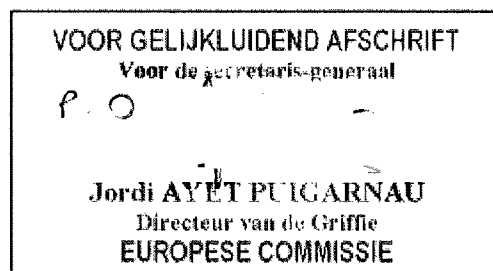 VOOR GELIJKLUIDEND AFSCHRIFT
Voor de secretaris-generaal
P. O
Jordi AYET PUIGARNAU
Directeur van de Griffie
EUROPESE COMMISSIE